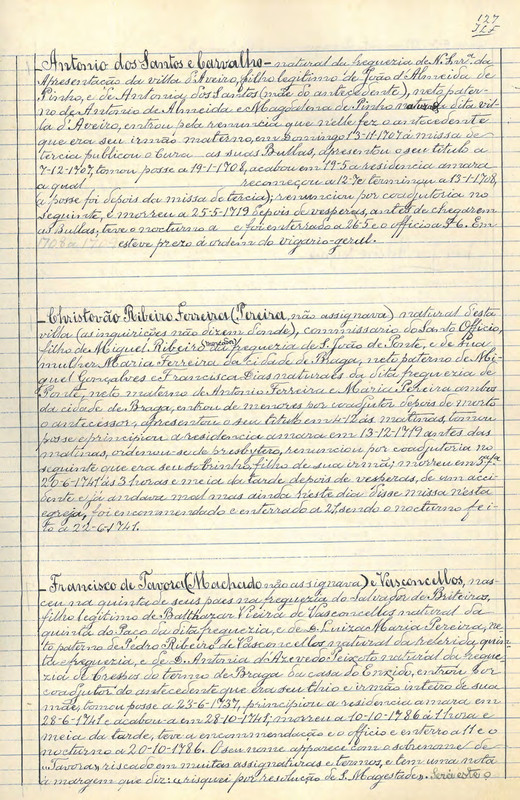 127
JLF
Antonio dos Santos e Carvalho - natural da freguezia de N. Snrª. da
Apresentação da villa d'Aveiro, filho legitimo de João d'Almeida de
Pinho, e de Antonia dos Santos (mãe do antecedente), neto pater-
no de Antonio de Almeida e Magdalena de Pinho da dita vil-
la d'Aveiro, entrou pela renuncia que nelle fez o antecedente
que era seu irmão materno, em Domingo 13-11-1707 á missa de
tercia publicou o Cura as suas Bullas, apresentou o seu titulo a
7-12-1707, tomou posse a 19-1-1708, acabou em 19-5 a residencia amara
a qual recomeçou a 12-7 e terminou a 13-1-1708,
(a posse foi depois da missa de tercia); renunciou por coadjutoria no
seguinte, e morreu a 25-5-1719 depois de vesperas, antes de chegarem
as Bullas, teve o nocturno a e foi enterrado a 26-5 e o officio a Em
1708 a esteve prezo á ordem do vigario-geral.
Christovão Ribeiro Ferreira (Pereira, não assignava) natural d'esta
villa (as inquirições não dizem donde), commissario do Santo Officio,
filho de Miguel Ribeiro da freguezia de S. João de Ponte, e de sua
mulher Maria Ferreira da cidade de Braga, neto paterno de Mi-
guel Gonçalves e Francisca Dias naturaes da dita freguezia de
Ponte, neto materno de Antonio Ferreira e Maria Pereira ambos
da cidade de Braga, entrou de menores por coadjutor depois de morto
o antecessor, apresentou o seu titulo em 4-12 ás matinas, tomou
posse e principiou a residencia amara em 13-12-1719 antes das
matinas, ordenou-se de presbytero, renunciou por coadjutoria no
seguinte que era seu sobrinho, filho de sua irmã; morreu em
20-6-1741 ás 3 horas e meia da tarde depois de vesperas, de um acci-
dente e já andava mal mas ainda n'este dia disse missa n'esta
egreja, foi encommendado e enterrado a 21, sendo o nocturno fei-
to a 22-6-1741.
Francisco de Tavora (Machado não assignava) e Vasconcellos, nas-
ceu na quinta de seus paes na freguezia do Salvador de Briteiros,
filho legitimo de Balthazar Vieira de Vasconcellos natural da
quinta do Paço da dita freguezia, e de D. Luiza Maria Pereira, ne-
to paterno de Pedro Ribeiro de Vasconcellos natural da referida quin-
ta e freguezia, e de D. Antonia d'Azevedo Peixoto natural da fregue-
zia de do termo de Braga da casa do Enxido, entrou por
coadjutor do antecedente que era seu thio e irmão inteiro de sua
mãe, tomou posse a 23-6-1737, principiou a residencia amara em
28-6-1741 e acabou-a em 28-10-1741; morreu a 10-10-1786 á 1 hora e
meia da tarde, teve a encommendação e o officio e enterro a 11 e o
nocturno a 20-10-1786. O seu nome apparece com o sobrenome de
«Tavora» riscado em muitas assignaturas e termos, e tem uma nota
á margem que diz: «risquei por resolução de S. Magestade». Será este o